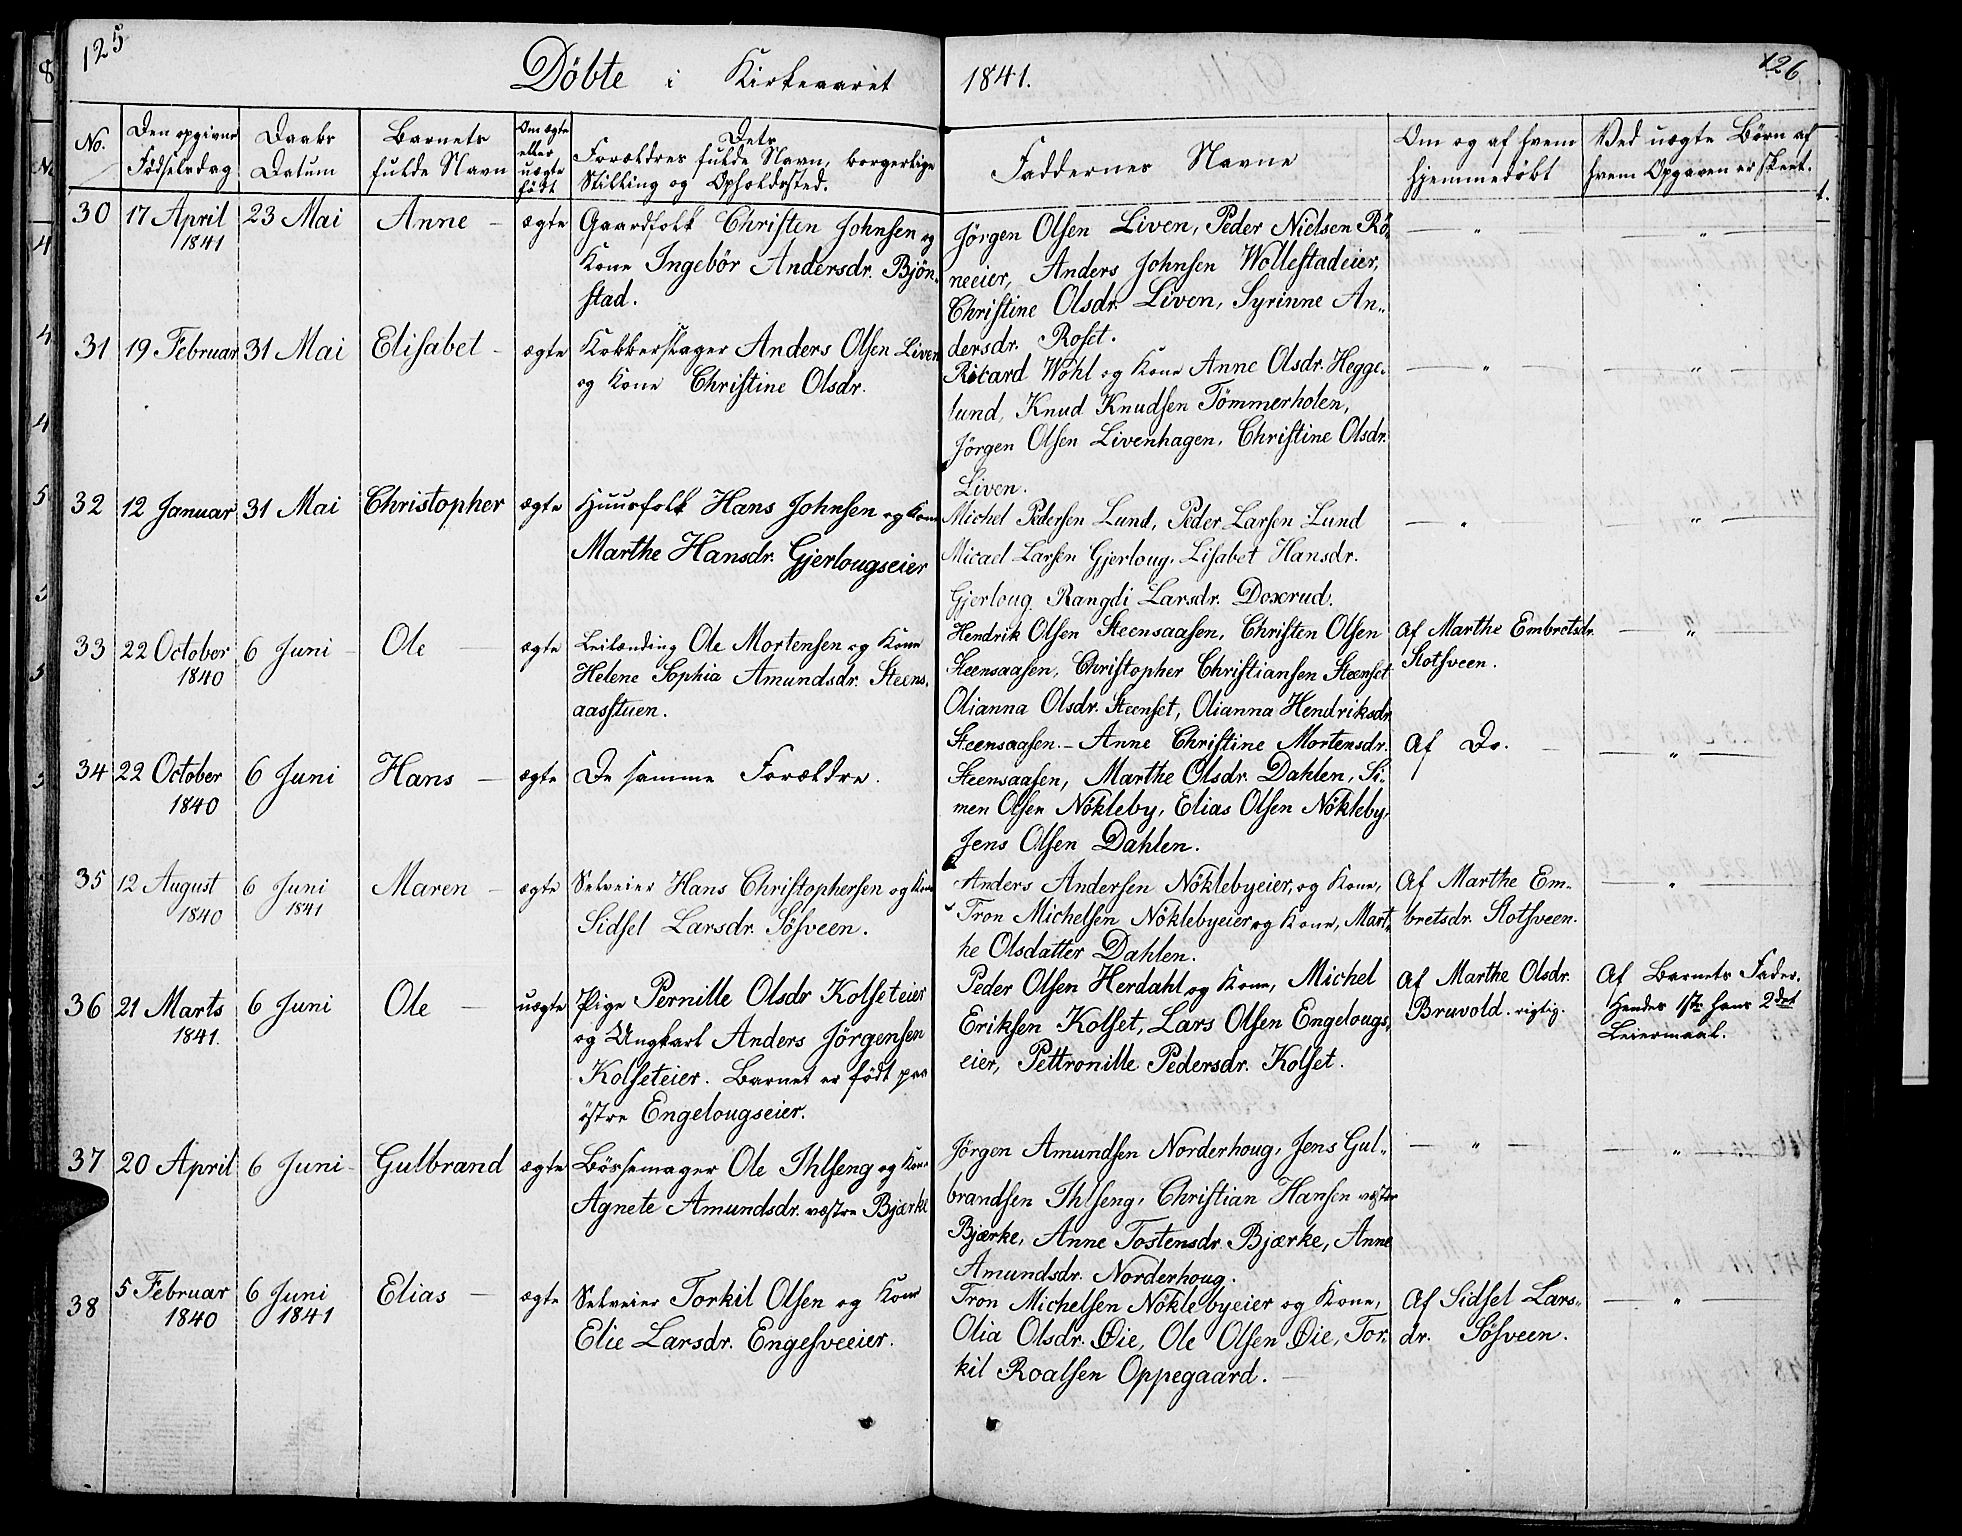 125
Döbte i Kirkeaaret
1841.
126
No.
Den opgivne Födselsdag
Daabs Datum
Barnets fulde Navn
Om ægte eller uægte født
Dets Forældres fulde Navn, borgerlige Stilling og Opholdssted.
Faddernes Navne
Om og af hvem hjemmedöbt
Ved uægte Börn af hvem Opgaven er skeet.
30 17 April 1841 23 Mai Anne – ægte
Gaardfolk Christen Johnsen og
Kone Ingebör Andersdr. Bjön-
stad.
Jörgen Olsen Liven, Peder Nielsen Rö-
neeier, Anders Johnsen Wollestadeier,
Christine Olsdr. Liven, Syrinne An-
dersdr. Roset.
— " —
— " —
31 19 Februar 31 Mai Elisabet – ægte
Kobberslager Anders Olsen Liven
og Kone Christine Olsdr.
Ricard Wohl og Kone Anne Olsdr. Hegge-
lund, Knud Knudsen Tömmerholen,
Jörgen Olsen Livenhagen, Christine Olsdr.
Liven.
— " —
— " —
32 12 Januar 31 Mai Christopher ægte
Huusfolk Hans Johnsen og Kone
Marthe Hansdr. Gjerlougseier
Michel Pedersen Lund, Peder Larsen Lund
Micael Larsen Gjerloug, Lisabet Hansdr.
Gjerloug. Rangdi Larsdr. Doxrud.
— " —
— " —
33 22 October 1840 6 Juni – Ole — ægte
Leilænding Ole Mortensen og Kone
Helene Sophia Amundsdr. Steens-
aasstuen.
Hendrik Olsen Steensaasen, Christen Olsen
Steensaasen, Christopher Christiansen Steenset
Olianna Olsdr. Steenset, Olianna Hendriksdr.
Af Marthe Embretsdr.
Slotsveen.
— " —
34 22 October 1840 6 Juni Hans — ægte
De samme Forældre.
Steensaasen. – Anne Christine Mortensdr.
Steensaasen, Marthe Olsdr. Dahlen, Si-
men Olsen Nökleby, Elias Olsen Nökleby,
Jens Olsen Dahlen.
Af Do. —
— " —
35 12 August 1840 6 Juni 1841 Maren – ægte
Selveier Hans Christophersen og Kone
Sidsel Larsdr. Sösveen.
Anders Andersen Nöklebyeier, og Kone,
Tron Michelsen Nöklebyeier og Kone, Mart-
he Olsdatter Dahlen.
Af Marthe Em-
bretsdr. Slotsveen.
— " —
36 21 Marts 1841. 6 Juni Ole — uægte
Pige Pernille Olsdr Kolseteier
og Ungkarl Anders Jörgensen
Kolseteier. Barnet er födt paa
östre Engelougseier.
Peder Olsen Herdahl og Kone, Michel
Eriksen Kolset, Lars Olsen Engelougs-
eier, Pettronille Pedersdr. Kolset.
Af Marthe Olsdr.
Bruvold. rigtig.
Af Barnets Fader.
Hendes 1ste hans 2det
Leiermaal.
37 20 April 6 Juni – Gulbrand ægte
Bössemager Ole Ihlseng og Kone
Agnete Amundsdr. vestre Bjærke
Jörgen Amundsen Norderhoug, Jens Gul-
brandsen Ihlseng, Christian Hansen vestre
Bjærke, Anne Tostensdr. Bjærke, Anne
Amundsdr. Norderhoug.
— " —
— " —
38 5 Februar 1840 6 Juni 1841 Elias — ægte
Selveier Torkil Olsen og Kone
Elie Larsdr. Engesveeier.
Tron Michelsen Nöklebyeier og Kone,
Olia Olsdr. Öie, Ole Olsen Öie, Tor-
kil Roalsen Oppegaard. —
Af Sidsel Lars-
dr. Sösveen.
— " —